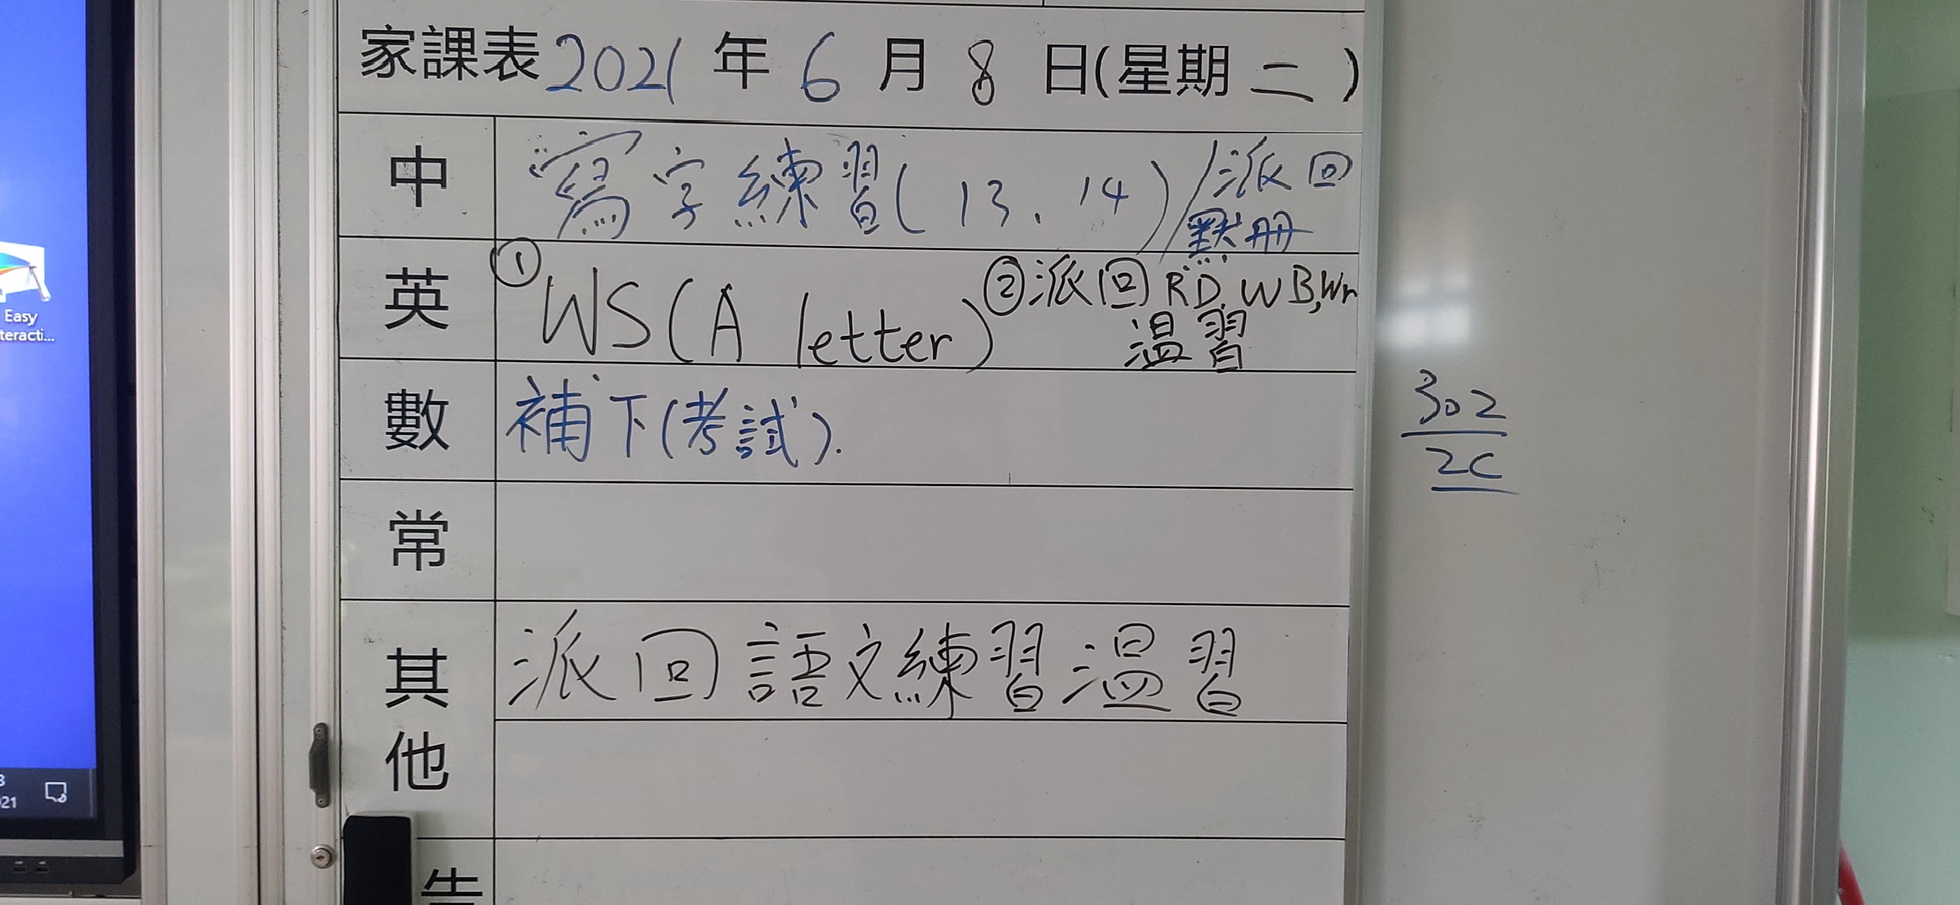 家課表2021年6月8日(星期二)
中
寫字練習(13、14)/派回
默冊
英
①WS(A letter) ②派回RD, WB, Wr
溫習
數
補下(考試).
常
其他
派回語文練習溫習
告
302
2C
Easy
teracti...
21